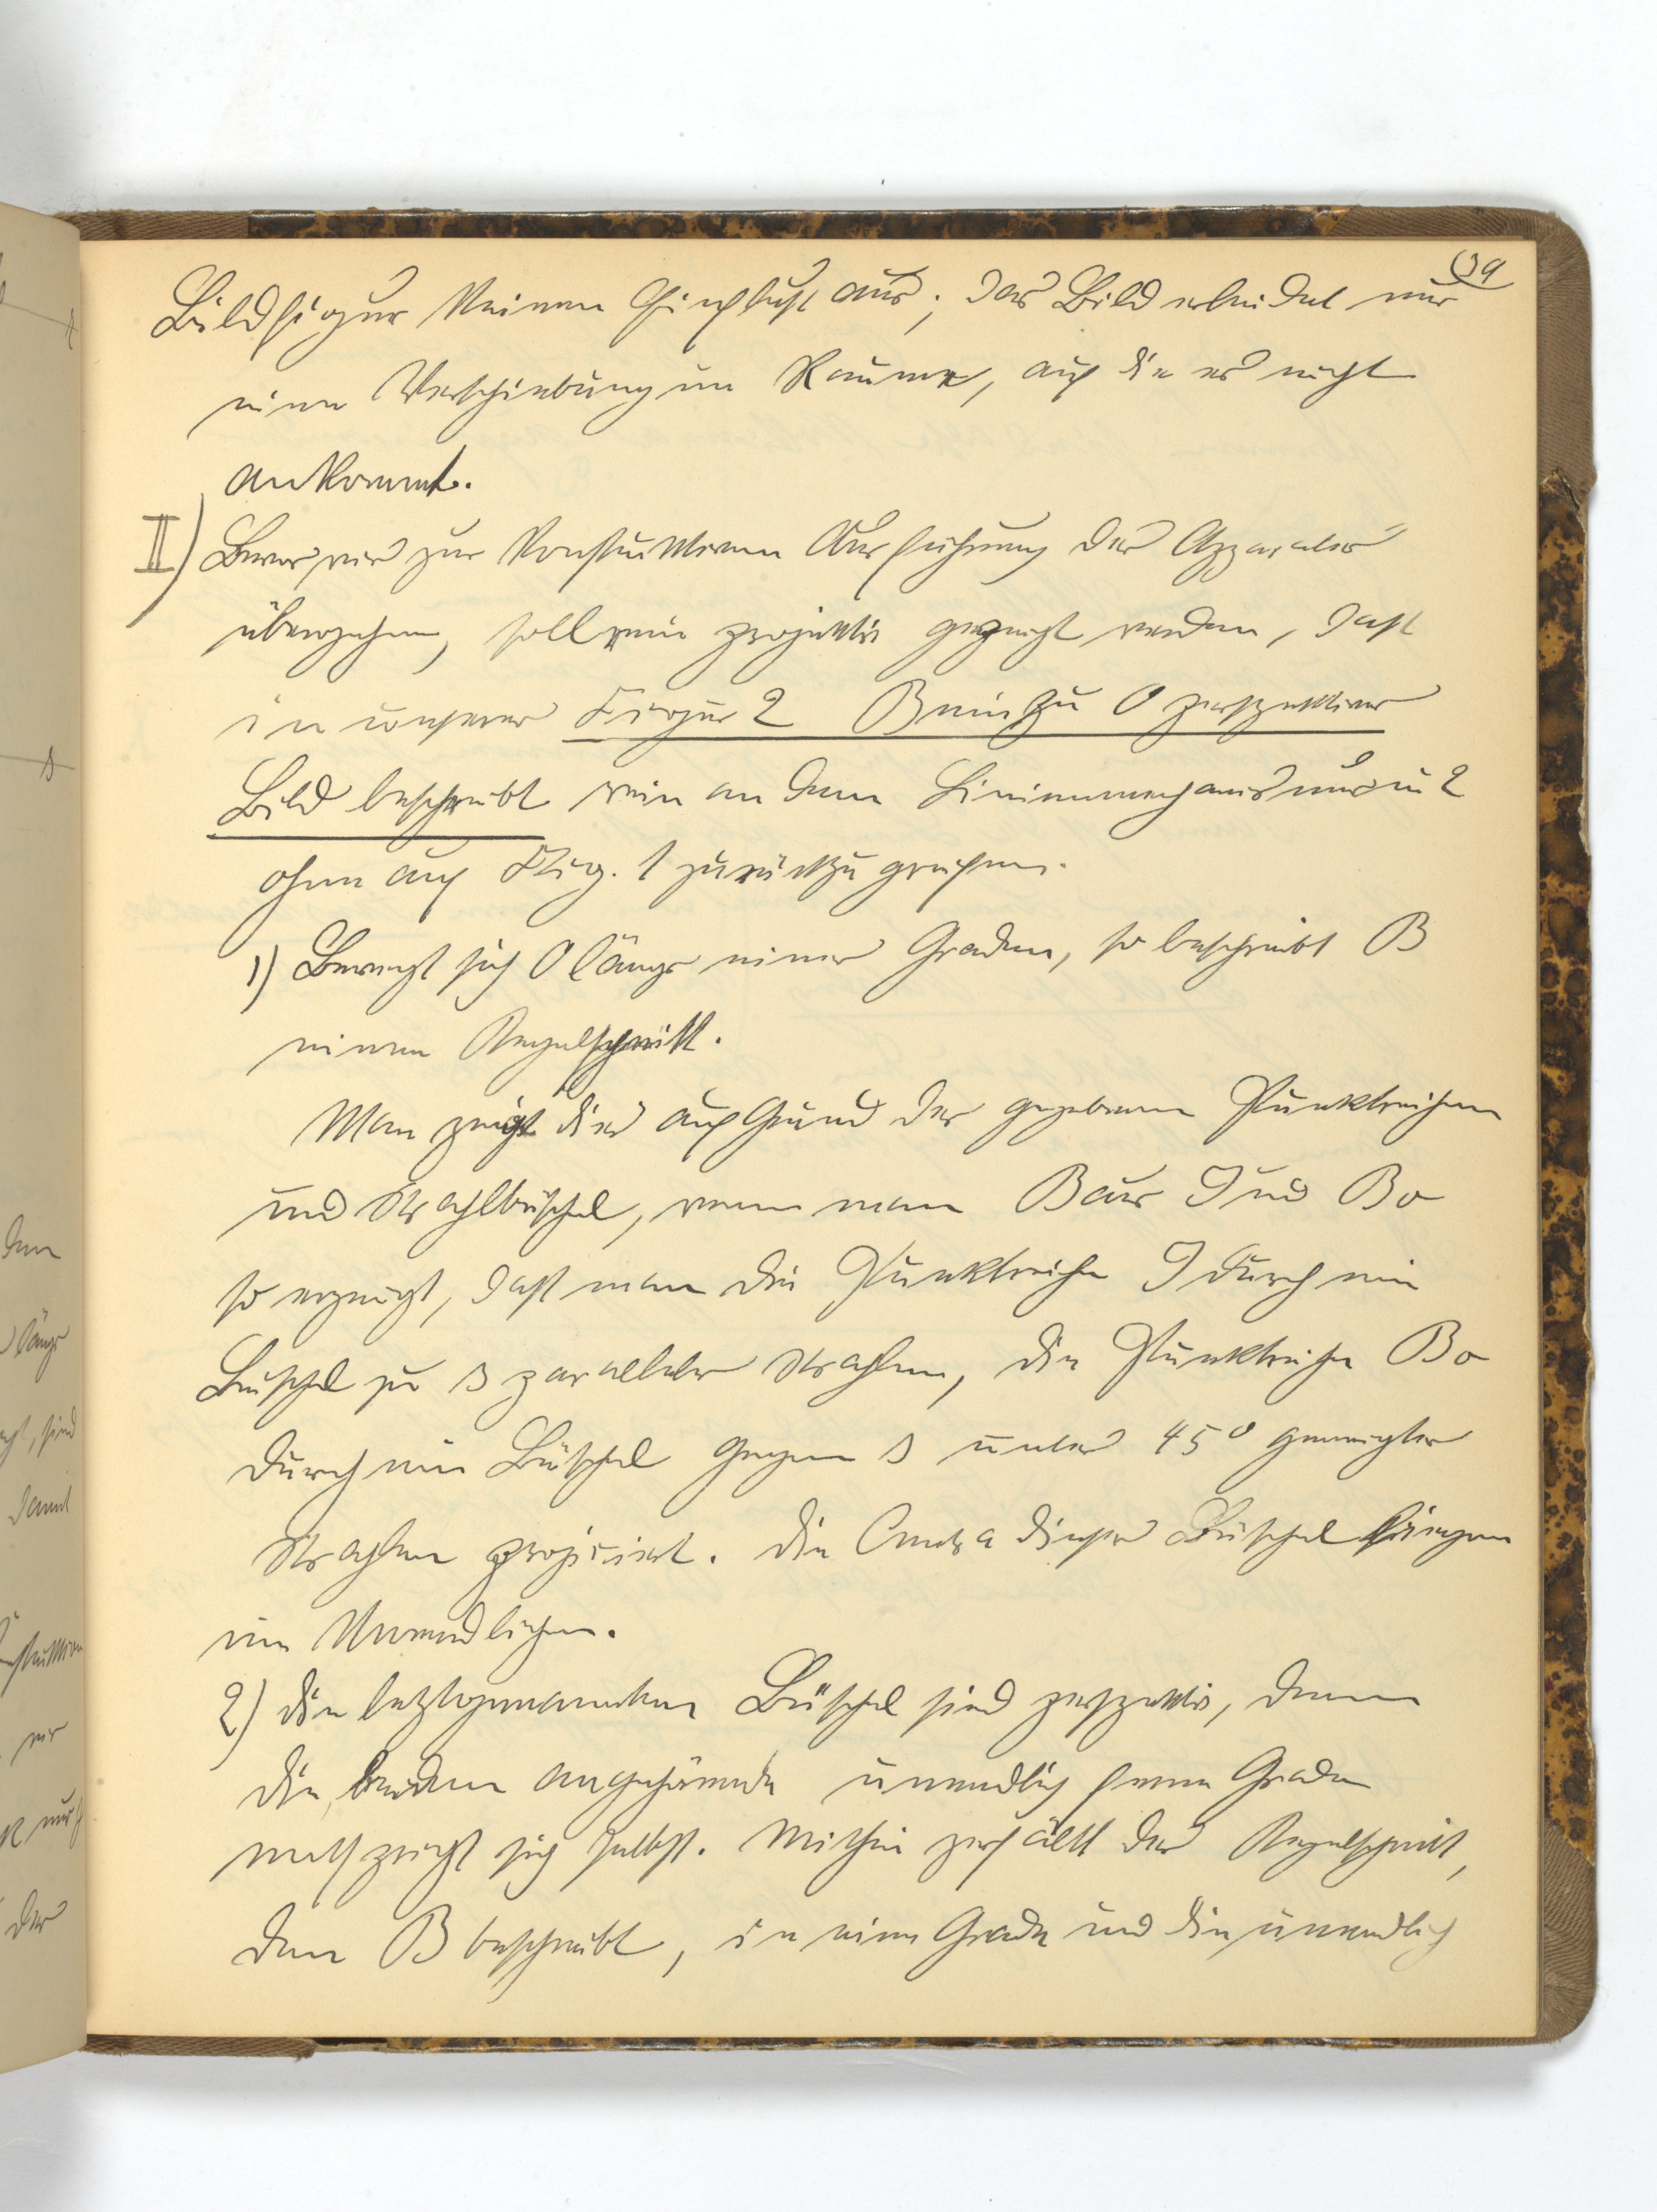 39
Bildfigur keinen Einfluß aus; das Bild erleidet nur
eine Verschiebung im Raume, auf die es nicht
ankommt.
II) Bevor wir zur konstruktiven Ausführung des Apparates
übergehen, soll rein projektiv gezeigt werden, daß
in unserer Figur 2 B ein zu O perspektives
Bild beschreibt rein an dem Linienmechanismus in 2
ohne auf Fig. 1 zurückzugreifen.
1) Bewegt sich O längs einer Graden, so beschreibt B
einen Kegelschnitt.
Man zeigt dies auf Grund der gegebenen Punktreihen
und Strahlbüschel, wenn man B aus J und Bo
so erzeugt, daß man die Punktreihe J durch ein
Büschel zu s paralleler Strahlen, die Punktreihe Bo
durch ein Büschel gegen s unter 45° geneigter
Strahlen projiciert. Die Centra dieser Büschel liegen
im Unendlichen.
2) Die letztgenannten Büschel sind perspektiv, denn
die beiden angehörende unendlich ferne Grade
entspricht sich selbst. Mithin zerfällt der Kegelschnitt,
den B beschreibt, in eine Grade und die unendlich